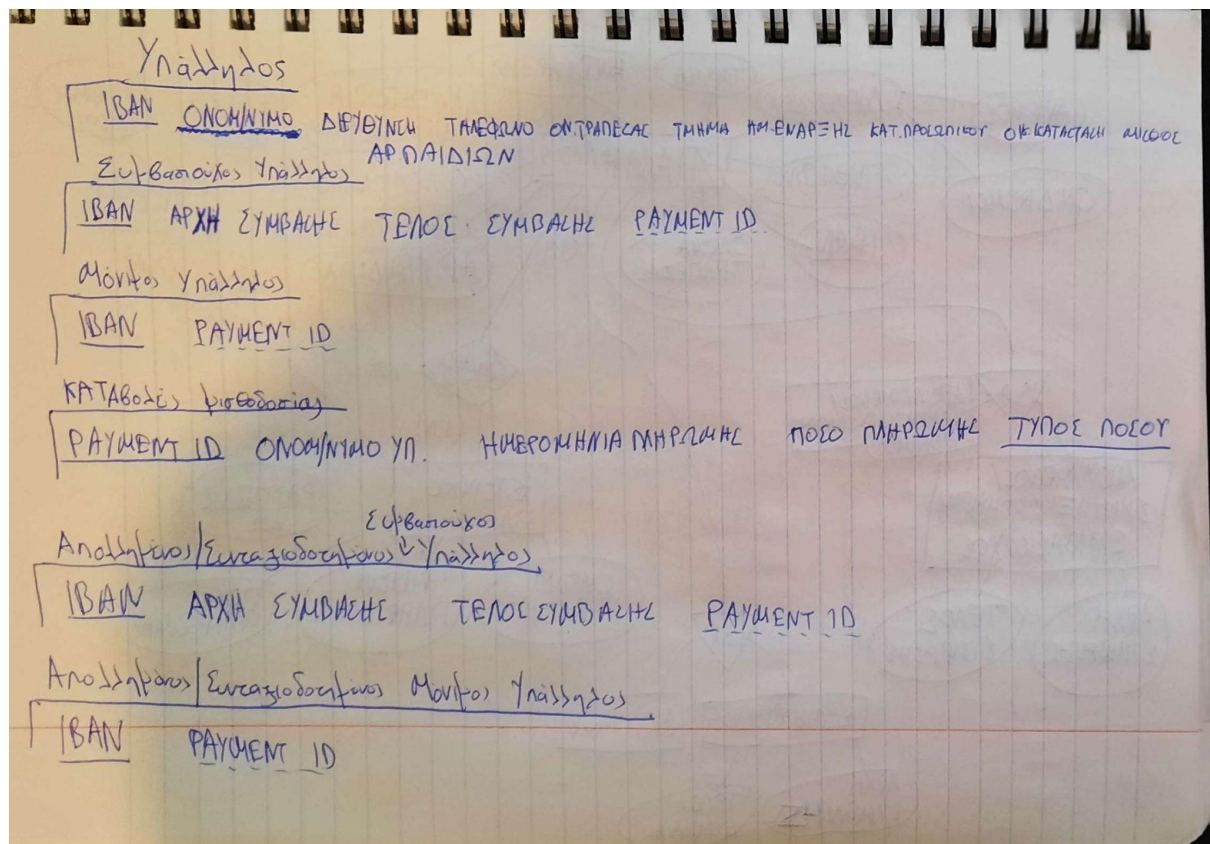 Υπάλληλος
IBAN ΟΝΟΜ/ΝΥΜΟ ΔΙΕΥΘΥΝΣΗ ΤΗΛΕΦΩΝΟ ΟΝ.ΤΡΑΠΕΖΑΣ ΤΜΗΜΑ ΗΜ.ΕΝΑΡΞΗΣ ΚΑΤ.ΠΡΟΣΩΠΙΚΟΥ ΟΙΚ.ΚΑΤΑΣΤΑΣΗ ΜΙΣΘΟΣ
ΑΡ ΠΑΙΔΙΩΝ
Συμβασιούχος Υπάλληλος
IBAN ΑΡΧΗ ΣΥΜΒΑΣΗΣ ΤΕΛΟΣ ΣΥΜΒΑΣΗΣ PAYMENT ID
Μόνιμος Υπάλληλος
IBAN PAYMENT ID
ΚΑΤΑβολές μισθοδοσίας
PAYMENT ID ΟΝΟΜ/ΝΥΜΟ ΥΠ. ΗΜΕΡΟΜΗΝΙΑ ΠΛΗΡΩΜΗΣ ΠΟΣΟ ΠΛΗΡΩΜΗΣ ΤΥΠΟΣ ΠΟΣΟΥ
Συμβασιούχος
Απολυμένος/Συνταξιοδοτημένος Υπάλληλος
IBAN ΑΡΧΗ ΣΥΜΒΑΣΗΣ ΤΕΛΟΣ ΣΥΜΒΑΣΗΣ PAYMENT ID
Απολυμένος/Συνταξιοδοτημένος Μόνιμος Υπάλληλος
IBAN PAYMENT ID